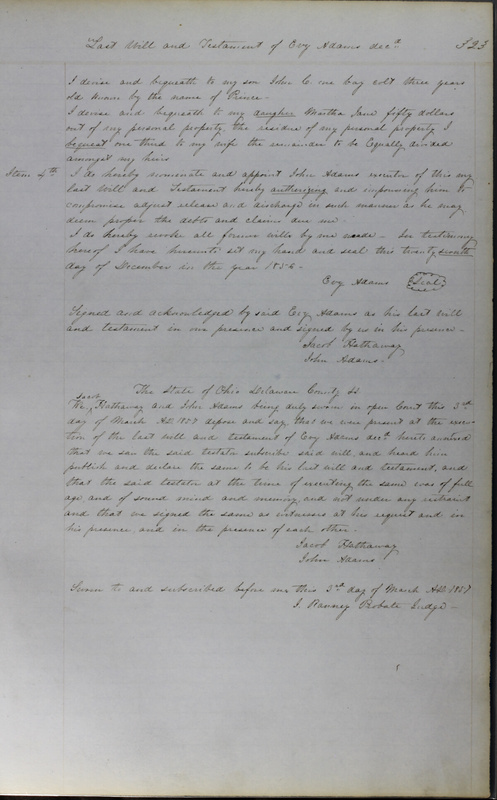 Last Will and Testament of Evy Adams decd 323
I devise and bequeath to my son John C. one bay colt three years
old known by the name of Prince.
I devise and bequeath to my daugher Martha Jane fifty dollars
out of my personal property, the residue of my personal property I
bequest one third to my wife the remainder to be Equally divided
amongst my heirs
Item 4th I do hereby nominate and appoint John Adams executor of this my
last Will and Testament hereby authorizing and impowering him to
compromise adjust release and discharge in such manner as he may
deem proper the debts and claims due me.
I do hereby revoke all former wills by me made - In testimony
hereof I have hereunto set my hand and seal this twenty seventh
day of December in the year 1856.
Evy Adams Seal
Signed and acknowledged by said Evy Adams as his last will
and testament in our presence and signed by us in his presence -
Jacob Hathaway
John Adams.
The State of Ohio Delaware County ss
We Jacob Hathaway and John Adams being duly sworn in open Court this 3rd
day of March AD 1857 depose and say that we were present at the execu-
tion of the last will and testament of Evy Adams decd hereto annexed
that we saw the said testator subscribe said will, and heard him
publish and declare the same to be his last will and testament, and
that the said testator at the time of executing the same was of full
age and of sound mind and memory, and not under any restraint
and that we signed the same as witnesses at his request and in
his presence, and in the presence of each other.
Jacob Hathaway
John Adams
Sworn to and subscribed before me this 3rd day of March AD 1857
J. Ranney Probate Judge -